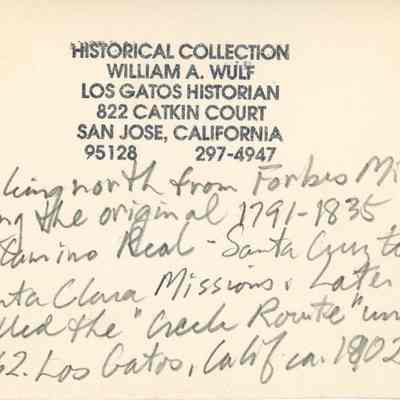 HISTORICAL COLLECTION
WILLIAM A. WULF
LOS GATOS HISTORIAN
822 CATKIN COURT
SAN JOSE, CALIFORNIA
95128 297-4947
king north from Forbes Mi
ng the original 1791-1835
Camino Real - Santa Cruz to
nta Clara Missions. Later
lled the "Creek Route" un
62. Los Gatos, Calif ca. 1902